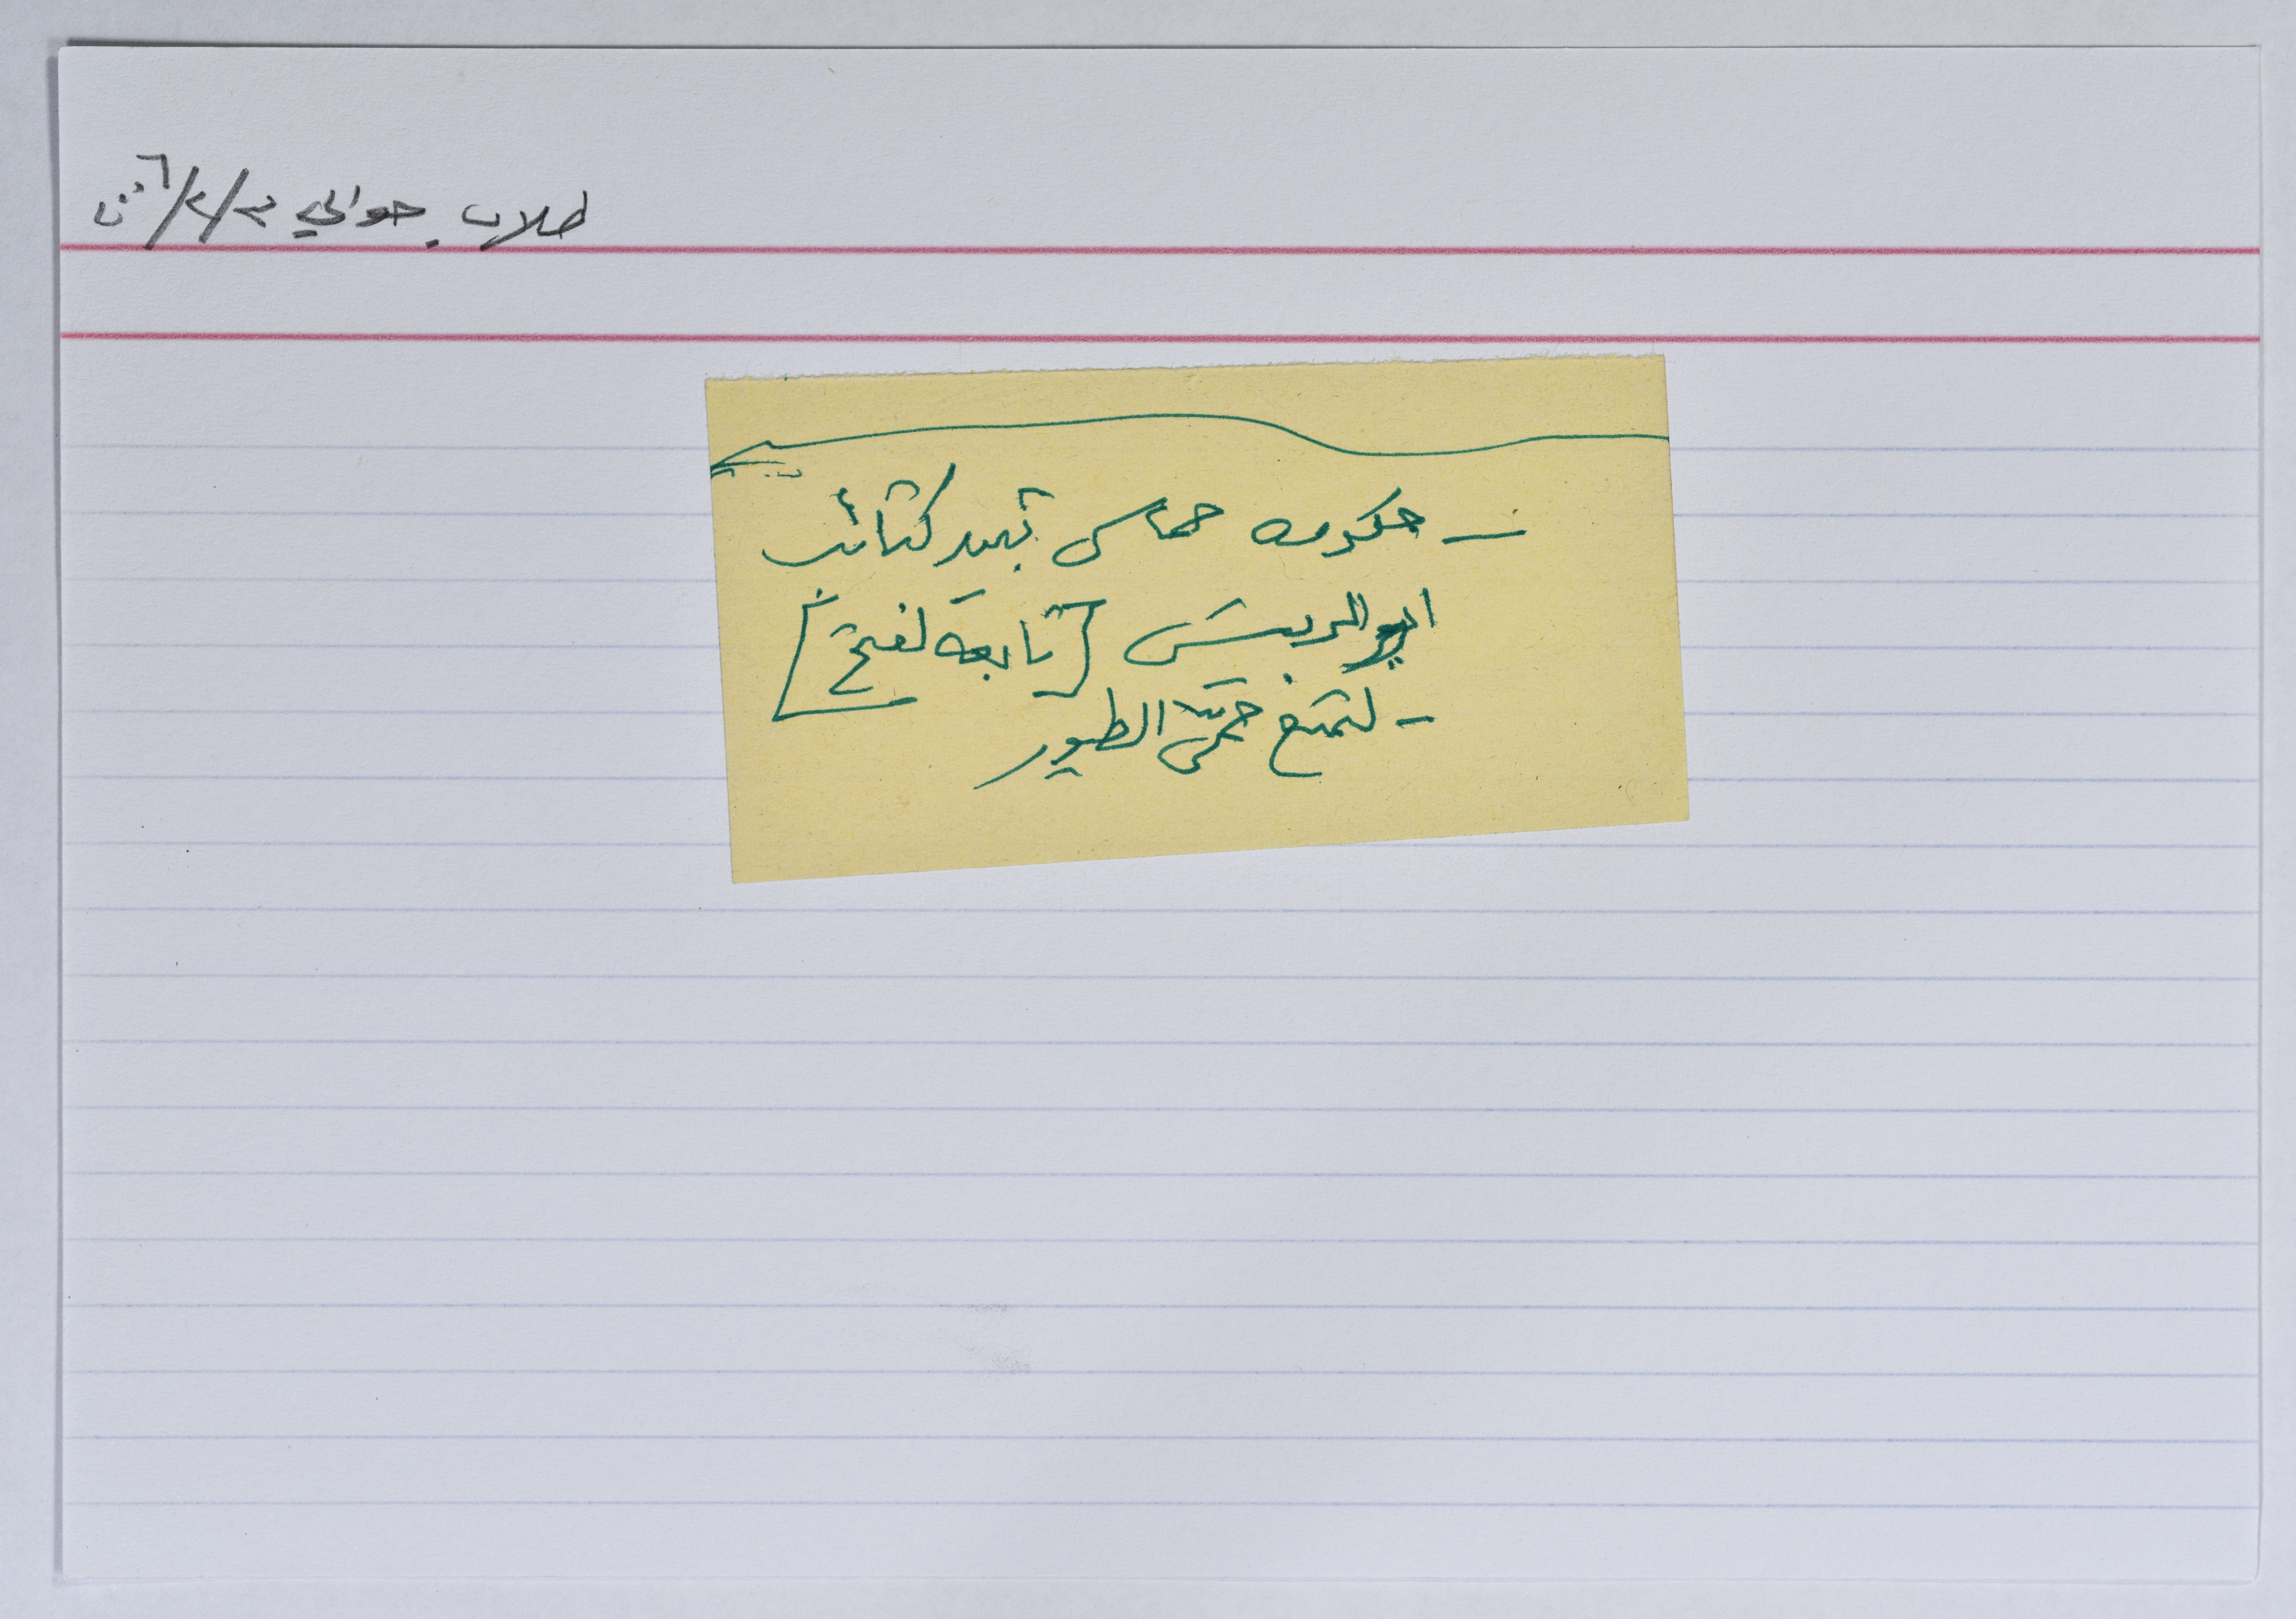 طلاب حوالي ٣/٢/٢٠٠٦
- حكومه حماس تبيد كتائب
ابو الريش [تابعة لفتح]
- لتمنع حمى الطيور